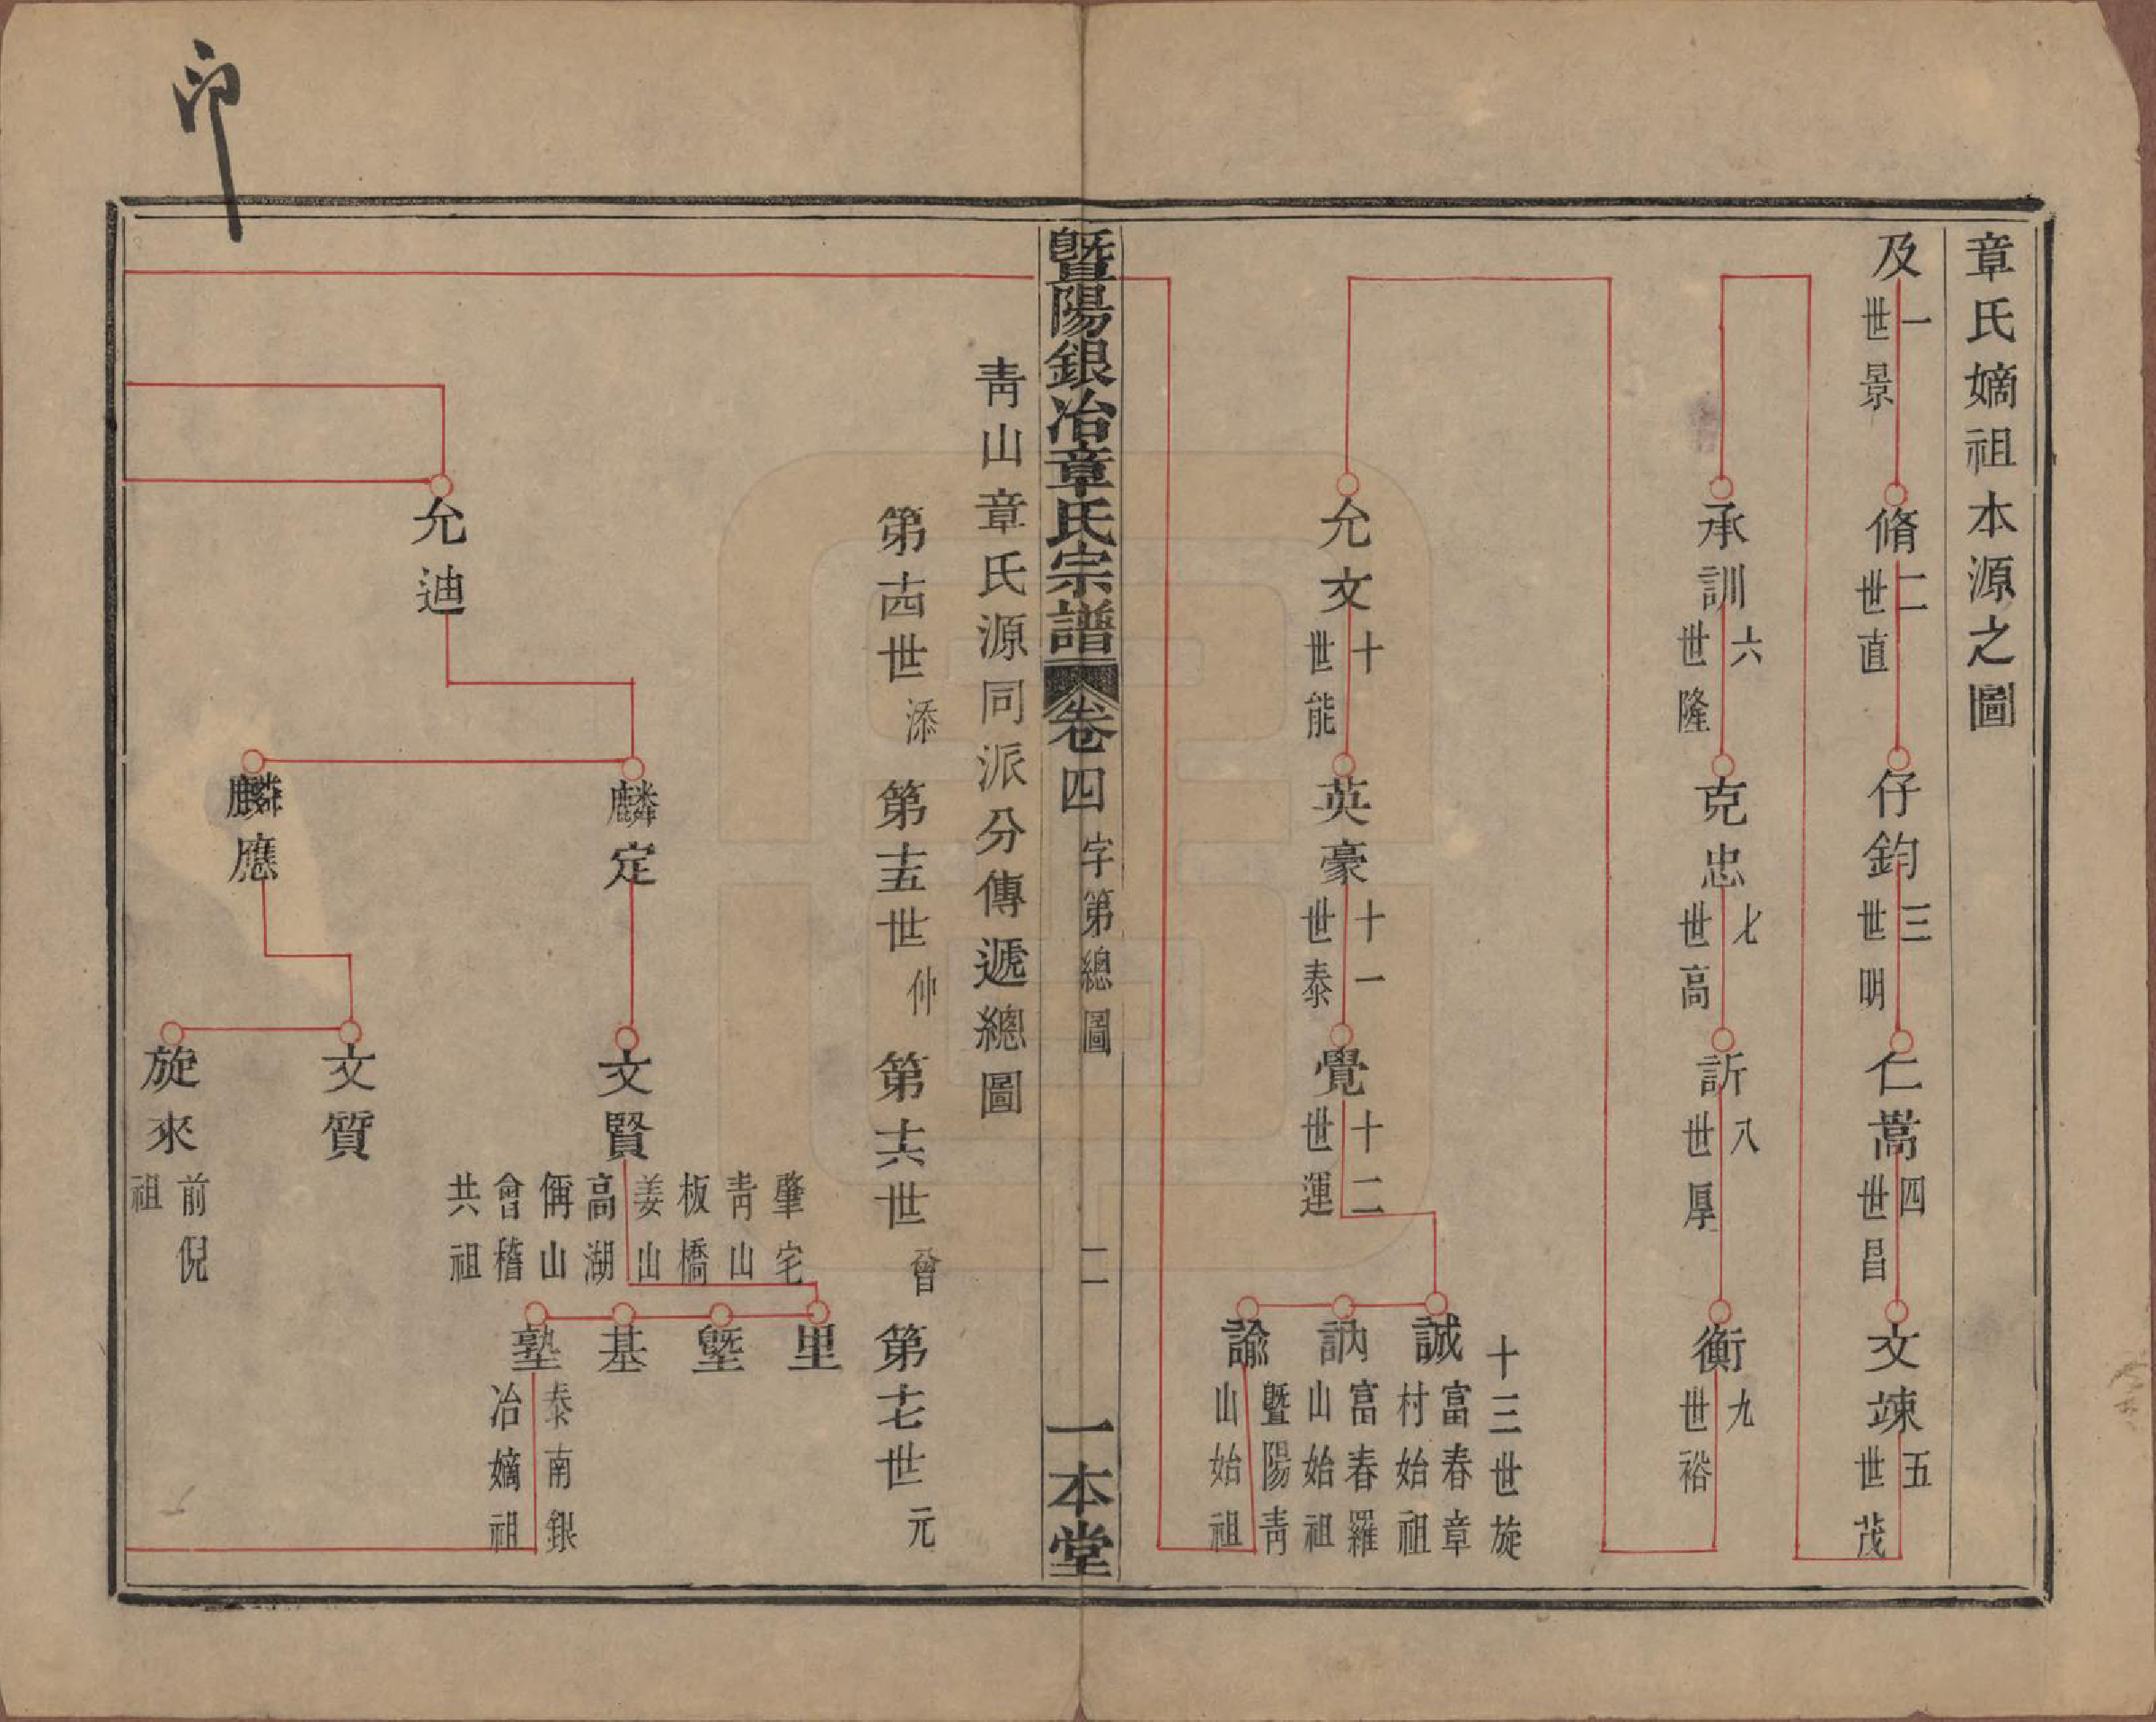 章氏嫡祖本源之圖
及 一世景
脩 二世直
仔鈞 三世明
仁嵩 四世昌
文竦 五世茂
承訓 六世隆
克忠 七世高
訢 八世厚
衡 九世裕
允文 十世能
英豪 十一世泰
覺 十二世運
十三世旋
誠 富春章村始祖
訥 富春羅山始祖
諭 暨陽青山始祖
暨陽銀冶章氏宗譜 卷四 字第總圖 二 一本堂
青山章氏源同派分傳遞總圖
第十四世 添
第十五世 仲
第十六世 曾
第十七世 元
允迪
麟定
麟應
文賢 肇宅 青山 板橋 姜山 高湖 偁山 會稽 共祖
文質
旋來 前倪祖
里
塈
基
塾 泰南銀冶嫡祖